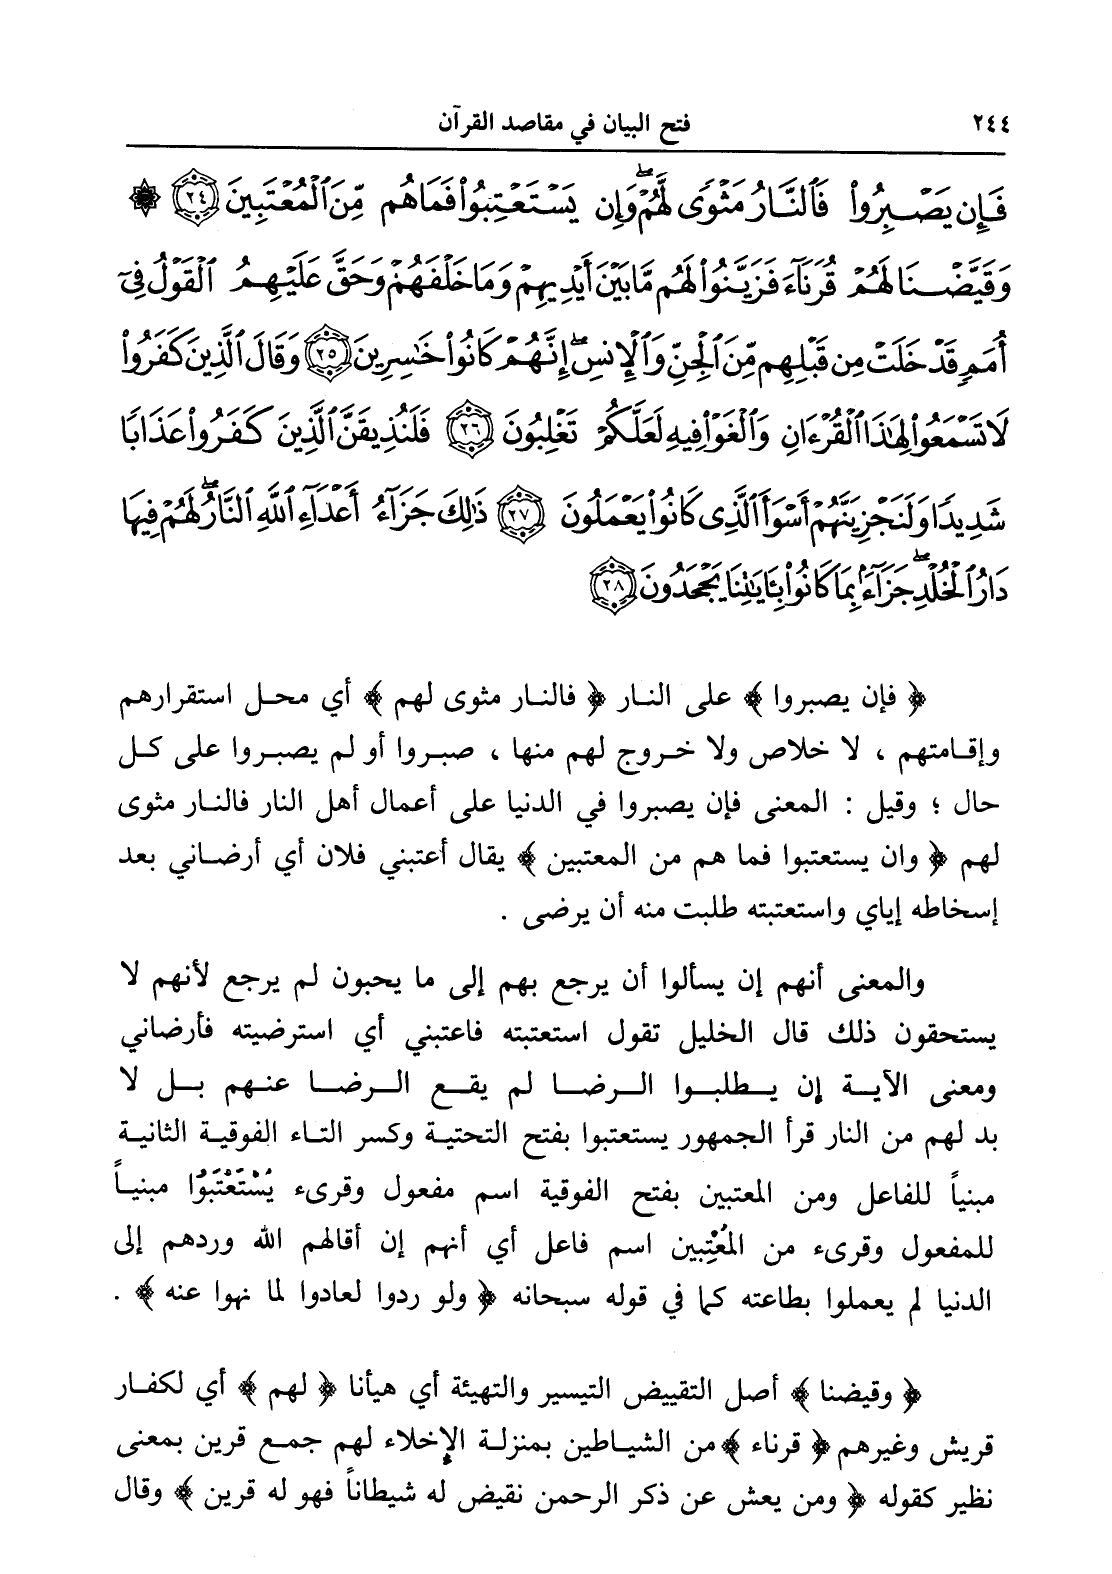 ٢٤٤
فتح البيان في مقاصد القرآن
فَإِن يَصْبِرُوا۟ فَٱلنَّارُ مَثْوًى لَّهُمْ ۖ وَإِن يَسْتَعْتِبُوا۟ فَمَا هُم مِّنَ ٱلْمُعْتَبِينَ ٢٤ ۞
وَقَيَّضْنَا لَهُمْ قُرَنَآءَ فَزَيَّنُوا۟ لَهُم مَّا بَيْنَ أَيْدِيهِمْ وَمَا خَلْفَهُمْ وَحَقَّ عَلَيْهِمُ ٱلْقَوْلُ فِىٓ
أُمَمٍ قَدْ خَلَتْ مِن قَبْلِهِم مِّنَ ٱلْجِنِّ وَٱلْإِنسِ ۖ إِنَّهُمْ كَانُوا۟ خَٰسِرِينَ ٢٥ وَقَالَ ٱلَّذِينَ كَفَرُوا۟
لَا تَسْمَعُوا۟ لِهَٰذَا ٱلْقُرْءَانِ وَٱلْغَوْا۟ فِيهِ لَعَلَّكُمْ تَغْلِبُونَ ٢٦ فَلَنُذِيقَنَّ ٱلَّذِينَ كَفَرُوا۟ عَذَابًا
شَدِيدًا وَلَنَجْزِيَنَّهُمْ أَسْوَأَ ٱلَّذِى كَانُوا۟ يَعْمَلُونَ ٢٧ ذَٰلِكَ جَزَآءُ أَعْدَآءِ ٱللَّهِ ٱلنَّارُ ۖ لَهُمْ فِيهَا
دَارُ ٱلْخُلْدِ ۖ جَزَآءًۢ بِمَا كَانُوا۟ بِـَٔايَٰتِنَا يَجْحَدُونَ ٢٨
﴿ فإن يصبروا ﴾ على النار ﴿ فالنار مثوى لهم ﴾ أي محل استقرارهم
وإقامتهم ، لا خلاص ولا خروج لهم منها ، صبروا أو لم يصبروا على كل
حال ؛ وقيل : المعنى فإن يصبروا في الدنيا على أعمال أهل النار فالنار مثوى
لهم ﴿ وان يستعتبوا فما هم من المعتبين ﴾ يقال أعتبني فلان أي أرضاني بعد
إسخاطه إياي واستعتبته طلبت منه أن يرضى .
والمعنى أنهم إن يسألوا أن يرجع بهم إلى ما يحبون لم يرجع لأنهم لا
يستحقون ذلك قال الخليل تقول استعتبته فاعتبني أي استرضيته فأرضاني
ومعنى الآية إن يطلبوا الرضا لم يقع الرضا عنهم بل لا
بد لهم من النار قرأ الجمهور يستعتبوا بفتح التحتية وكسر التاء الفوقية الثانية
مبنياً للفاعل ومن المعتبين بفتح الفوقية اسم مفعول وقرىء يُسْتَعْتَبُوا مبنياً
للمفعول وقرىء من المُعْتِبين اسم فاعل أي أنهم إن أقالهم الله وردهم إلى
الدنيا لم يعملوا بطاعته كما في قوله سبحانه ﴿ ولو ردوا لعادوا لما نهوا عنه ﴾ .
﴿ وقيضنا ﴾ أصل التقييض التيسير والتهيئة أي هيأنا ﴿ لهم ﴾ أي لكفار
قريش وغيرهم ﴿ قرناء ﴾ من الشياطين بمنزلة الإخلاء لهم جمع قرين بمعنى
نظير كقوله ﴿ ومن يعش عن ذكر الرحمن نقيض له شيطاناً فهو له قرين ﴾ وقال